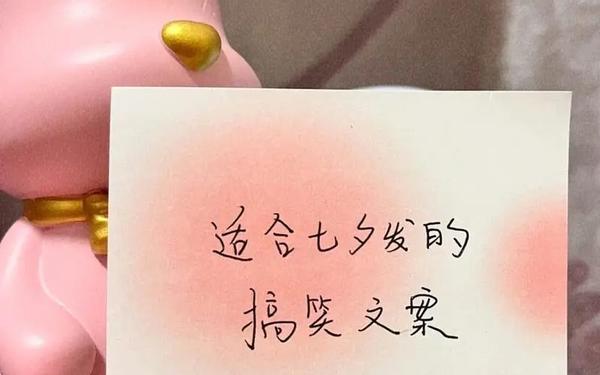 适合七夕发的
搞笑文案